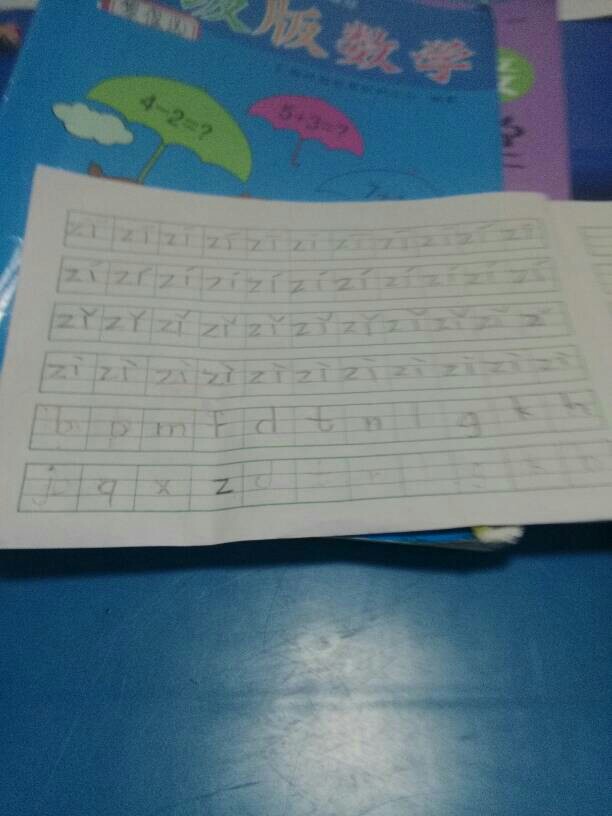 级版数学
4-2=?
5+3=?
zī zī zī zī zī zī zī zī zī zī zī
zí zí zí zí zí zí zí zí zí zí zí
zǐ zǐ zǐ zǐ zǐ zǐ zǐ zǐ zǐ zǐ z
zì zì zì zì zì zì zì zì zì zì zì
b p m f d t n l g k h
j q x z